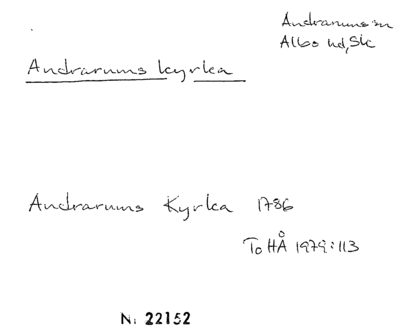 Andrarums sn
Albo hd, Sk
Andrarums kyrka
Andrarums Kyrka 1786
To HÅ 1979:113
N: 22152